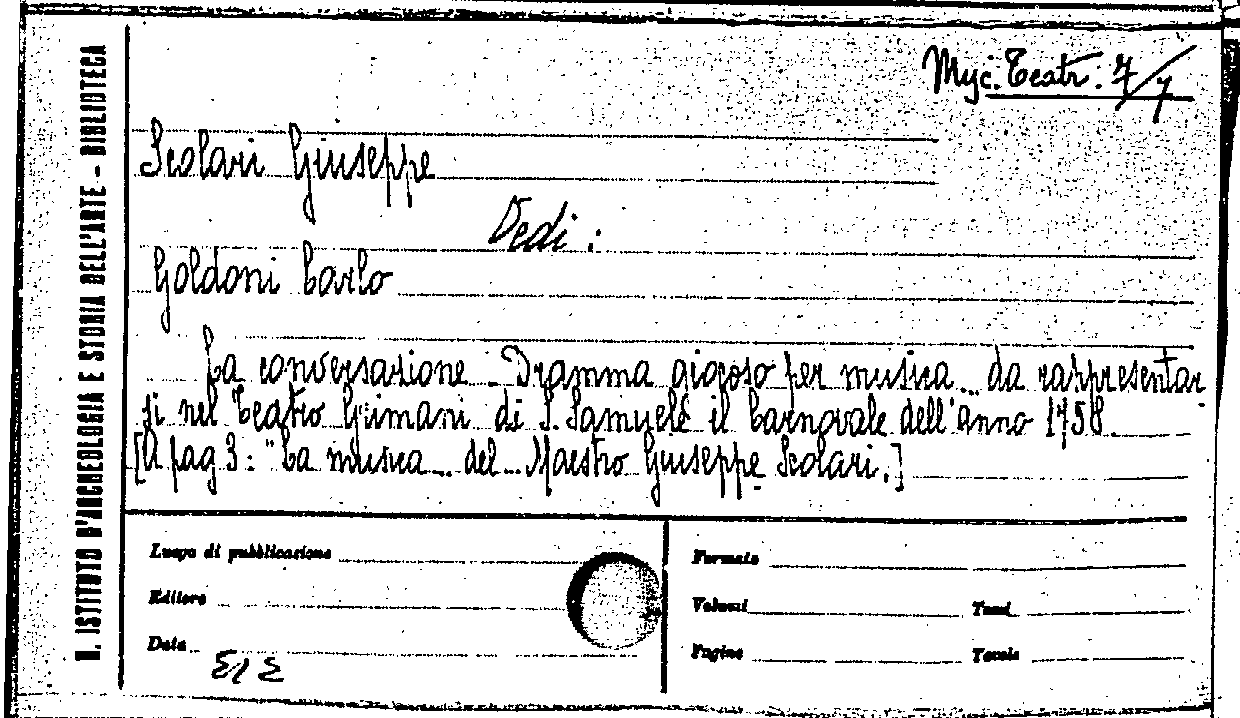 R. ISTITUTO D'ARCHEOLOGIA E STORIA DELL'ARTE - BIBLIOTECA
Misc. Teatr. 7/7
Scolari Giuseppe
Vedi:
Goldoni Carlo
La conversazione - Dramma giocoso per musica... da rappresentar
si nel Teatro Grimani di S. Samuele il Carnovale dell'anno 1758.
[A pag 3: "La musica... del... Maestro Giuseppe Scolari.]
Luogo di pubblicazione
Editore
Data
Formato
Volumi Tomi
Pagine Tavole